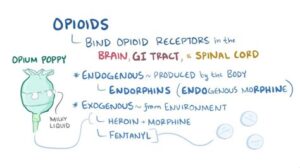 OPIOIDS
BIND OPIOID RECEPTORS in the
BRAIN, GI TRACT, & SPINAL CORD
OPIUM POPPY
* ENDOGENOUS ~ PRODUCED by the BODY
ENDORPHINS (ENDOGENOUS MORPHINE)
* EXOGENOUS ~ from ENVIRONMENT
MILKY
LIQUID
HEROIN & MORPHINE
FENTANYL